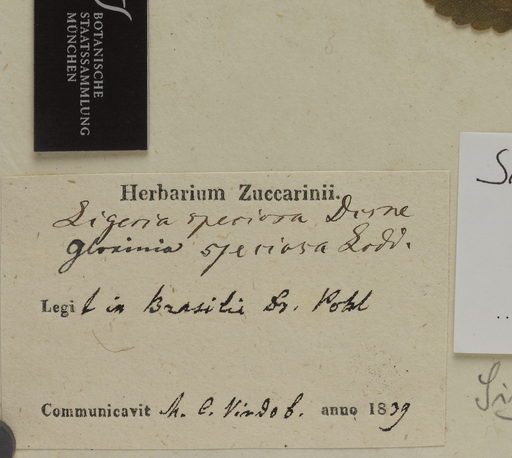 BOTANISCHE
STAATSSAMMLUNG
MÜNCHEN
Herbarium Zuccarinii.
Ligeria speciosa Decne
Gloxinia speciosa Lodd.
Legit in Brasilie Dr. Pohl
Communicavit M. C. Vindob. anno 1839